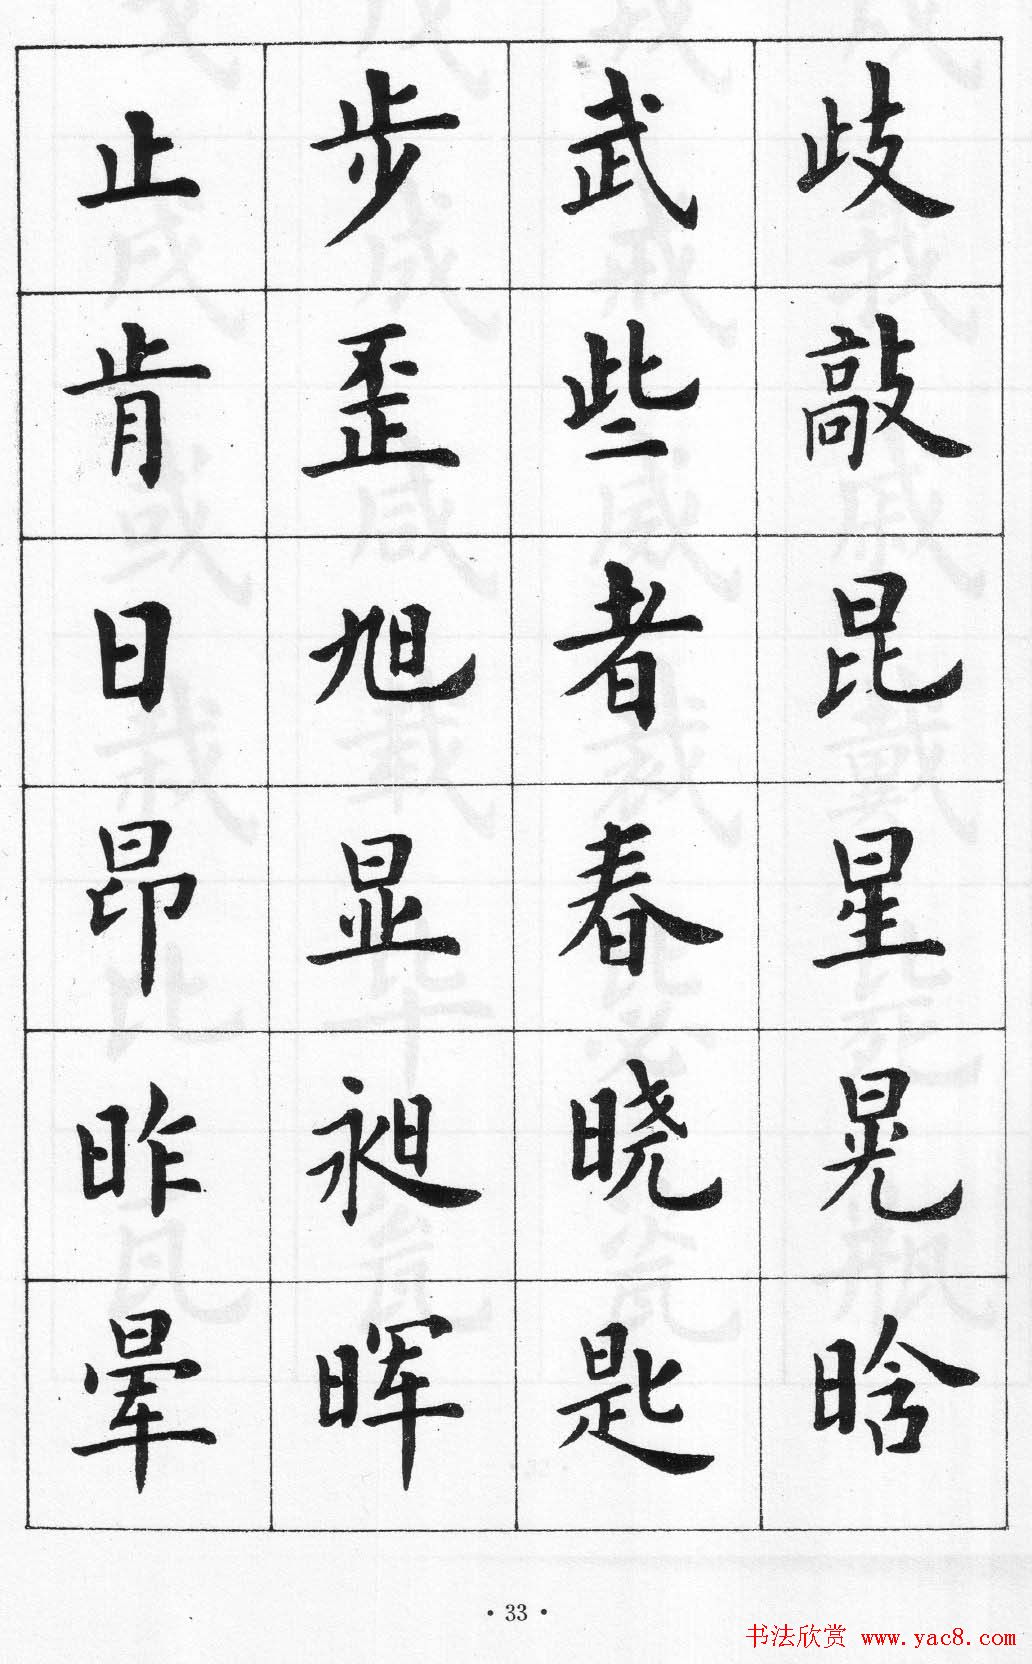 止 步 武 歧
肯 歪 些 敲
日 旭 者 昆
昂 显 春 星
昨 昶 晓 晃
晕 晖 匙 晗
· 33 ·
书法欣赏 www.yac8.com